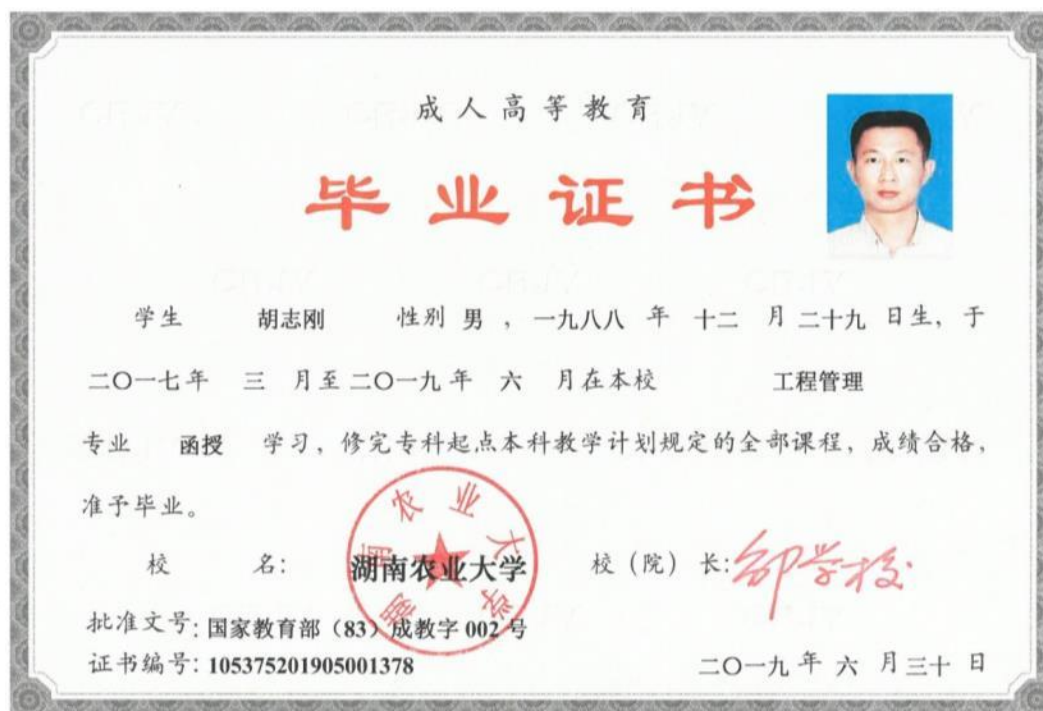 成人高等教育
毕业证书
学生 胡志刚 性别 男 ，一九八八 年 十二 月 二十九 日生，于
二〇一七年 三 月至二〇一九年 六 月在本校 工程管理
专业 函授 学习，修完专科起点本科教学计划规定的全部课程，成绩合格，
准予毕业。
湖南农业大学
校 名：湖南农业大学 校（院）长：邹学校
批准文号：国家教育部（83）成教字 002 号
证书编号：105375201905001378 二〇一九 年 六 月 三十 日